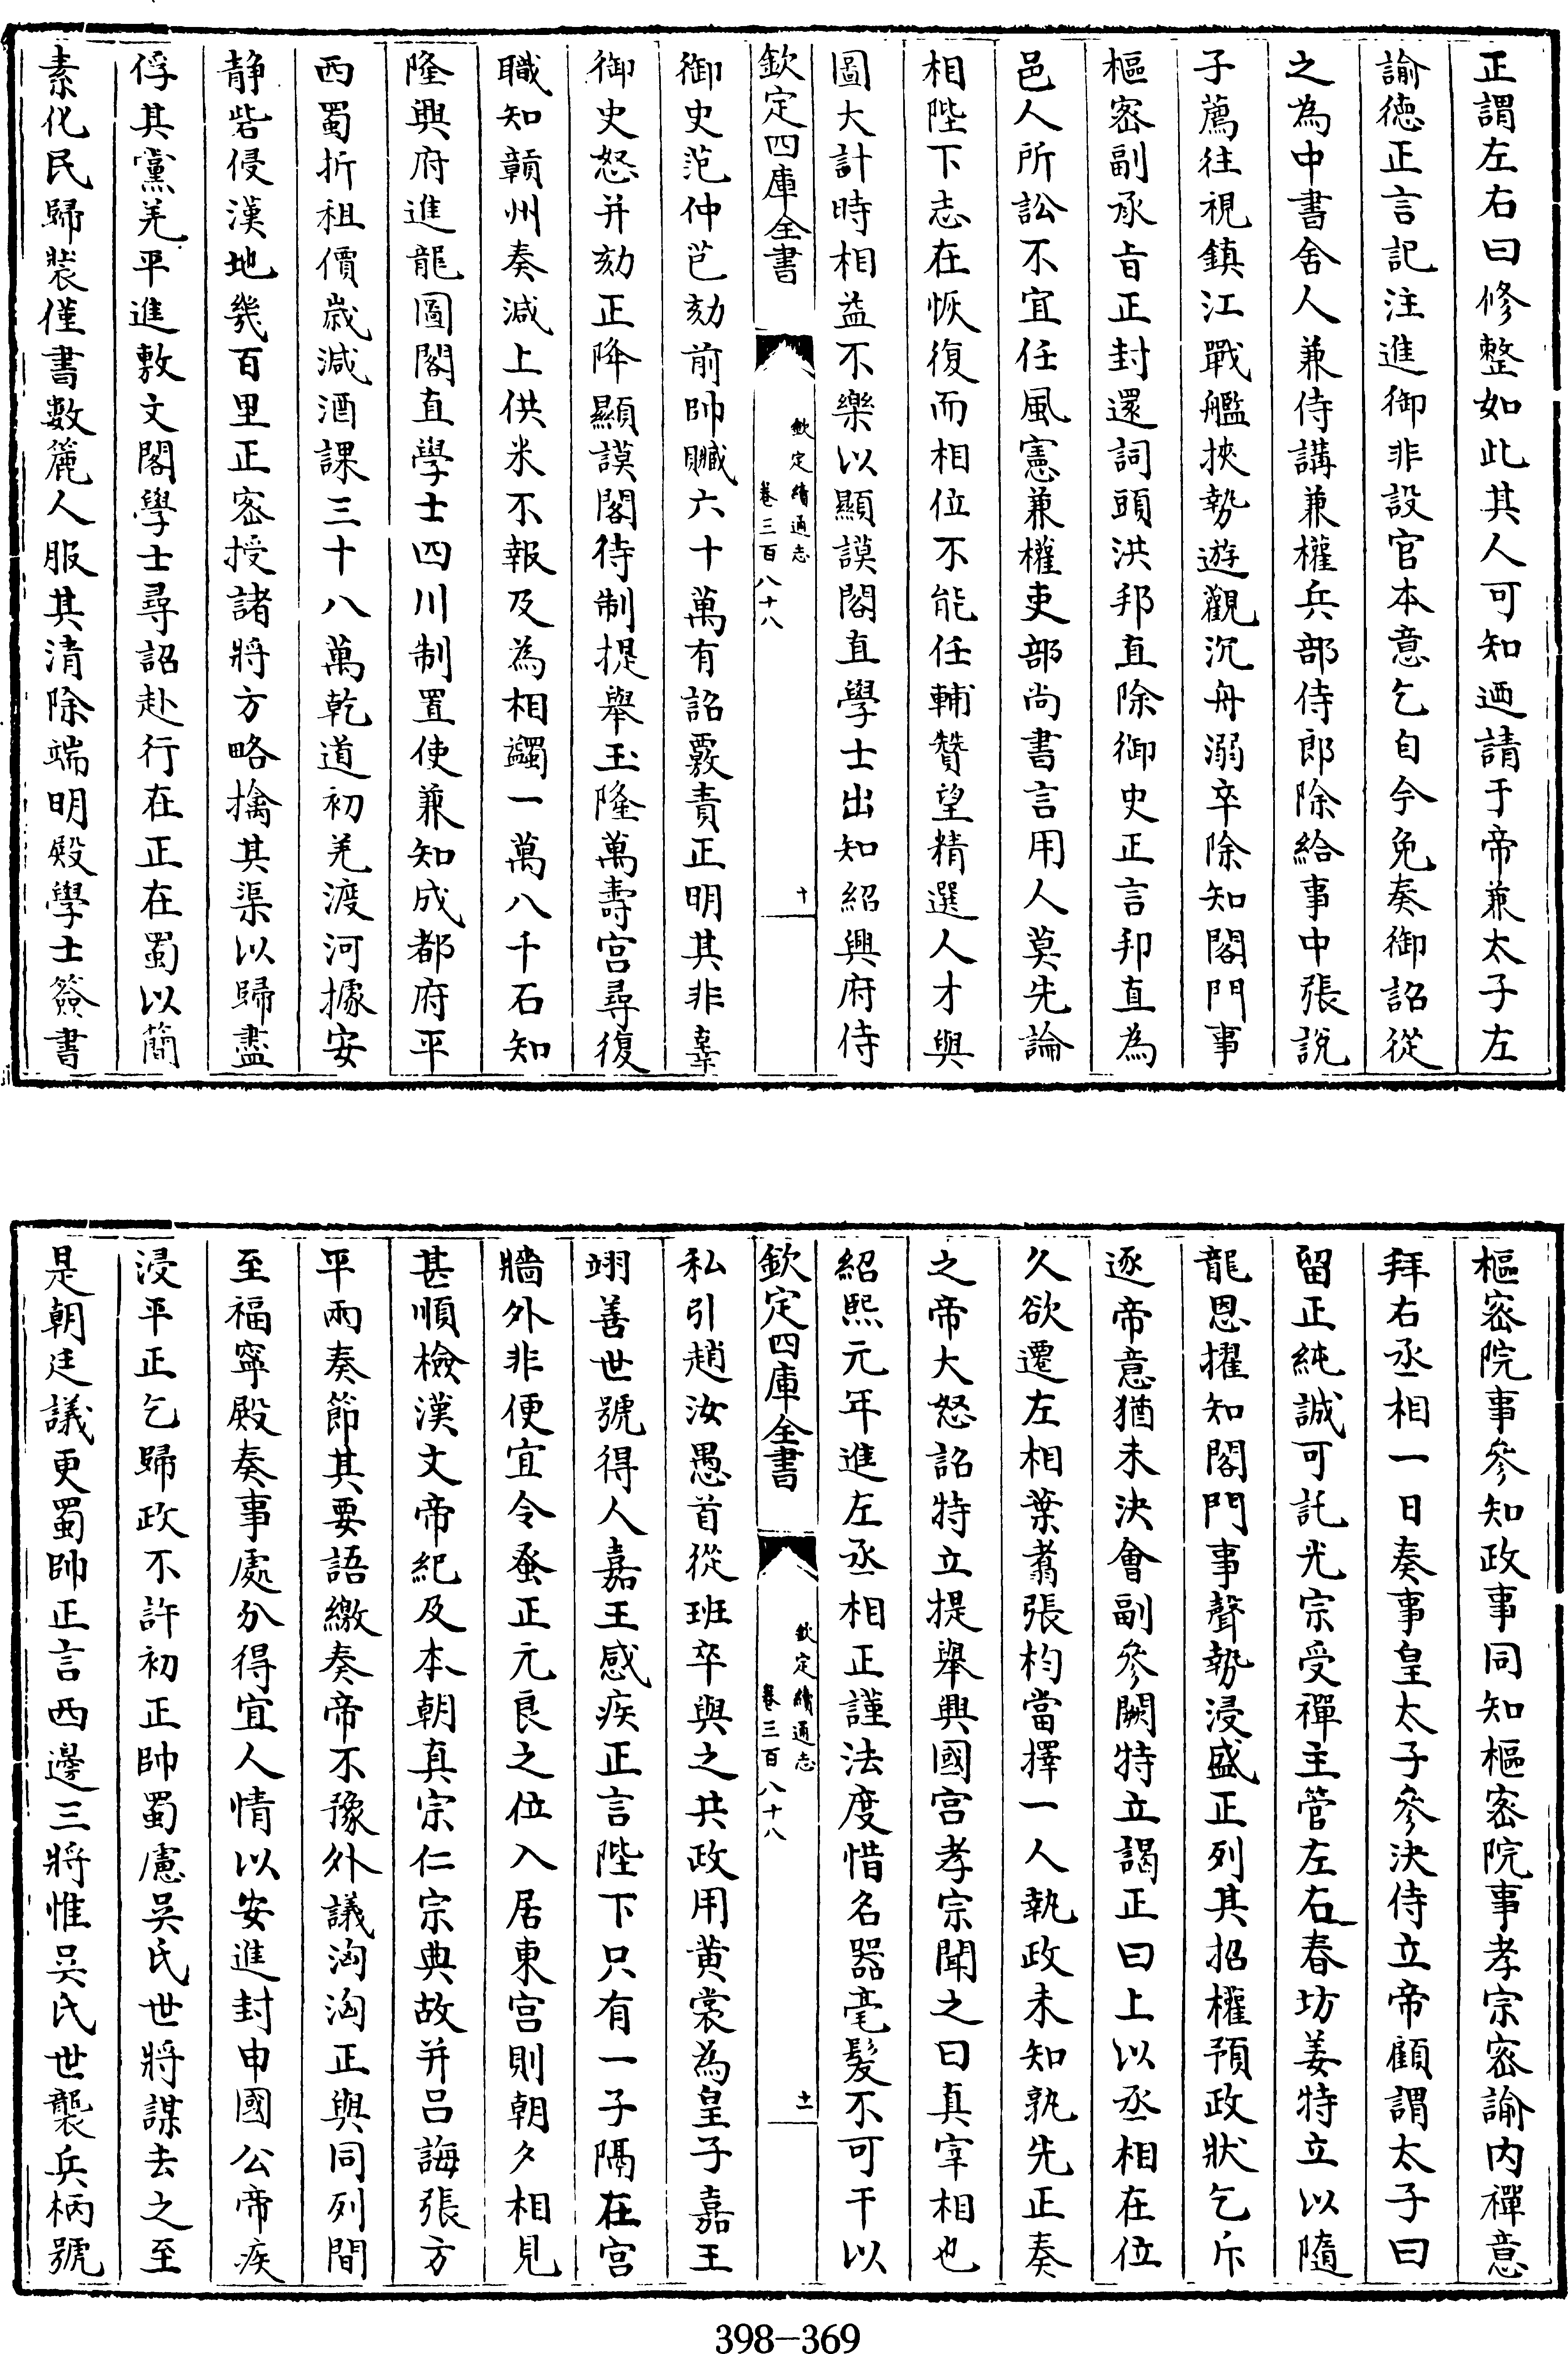 正謂左右曰修整如此其人可知迺請于帝兼太子左
諭徳正言記注進御非設官本意乞自今免奏御詔從
之為中書舍人兼侍講兼權兵部侍郎除給事中張説
子薦往視鎮江戰艦挾勢遊觀沉舟溺卒除知閤門事
樞密副承㫖正封還詞頭洪邦直除御史正言邦直為
邑人所訟不宜任風憲兼權吏部尚書言用人莫先論
相陛下志在恢復而相位不能任輔贊望精選人才與
圖大計時相益不樂以顯謨閣直學士出知紹興府侍
欽定四庫全書
欽定續通志
卷三百八十八
十
御史范仲芑劾前帥贓六十萬有詔覈責正明其非辜
御史怒并劾正降顯謨閣待制提舉玉隆萬壽宫尋復
職知贛州奏減上供米不報及為相蠲一萬八千石知
隆興府進龍圖閣直學士四川制置使兼知成都府平
西蜀折租價歳減酒課三十八萬乾道初羌渡河據安
静砦侵漢地幾百里正密授諸將方略擒其渠以歸盡
俘其黨羌平進敷文閣學士尋詔赴行在正在蜀以簡
素化民歸裝僅書數簏人服其清除端明殿學士簽書
樞密院事參知政事同知樞密院事孝宗密諭内禪意
拜右丞相一日奏事皇太子參決侍立帝顧謂太子曰
留正純誠可託光宗受禪主管左右春坊姜特立以隨
龍恩擢知閤門事聲勢浸盛正列其招權預政狀乞斥
逐帝意猶未決會副參闕特立謁正曰上以丞相在位
久欲遷左相葉翥張杓當擇一人執政未知孰先正奏
之帝大怒詔特立提舉興國宫孝宗聞之曰真宰相也
紹熙元年進左丞相正謹法度惜名器毫髮不可干以
欽定四庫全書
欽定續通志
卷三百八十八
十一
私引趙汝愚首從班卒與之共政用黄裳為皇子嘉王
翊善世號得人嘉王感疾正言陛下只有一子隔在宫
牆外非便宜令蚤正元良之位入居東宫則朝夕相見
甚順檢漢文帝紀及本朝真宗仁宗典故并呂誨張方
平兩奏節其要語繳奏帝不豫外議洶洶正與同列間
至福寧殿奏事處分得宜人情以安進封申國公帝疾
浸平正乞歸政不許初正帥蜀慮吳氏世將謀去之至
是朝廷議更蜀帥正言西邊三將惟吳氏世襲兵柄號
398-369